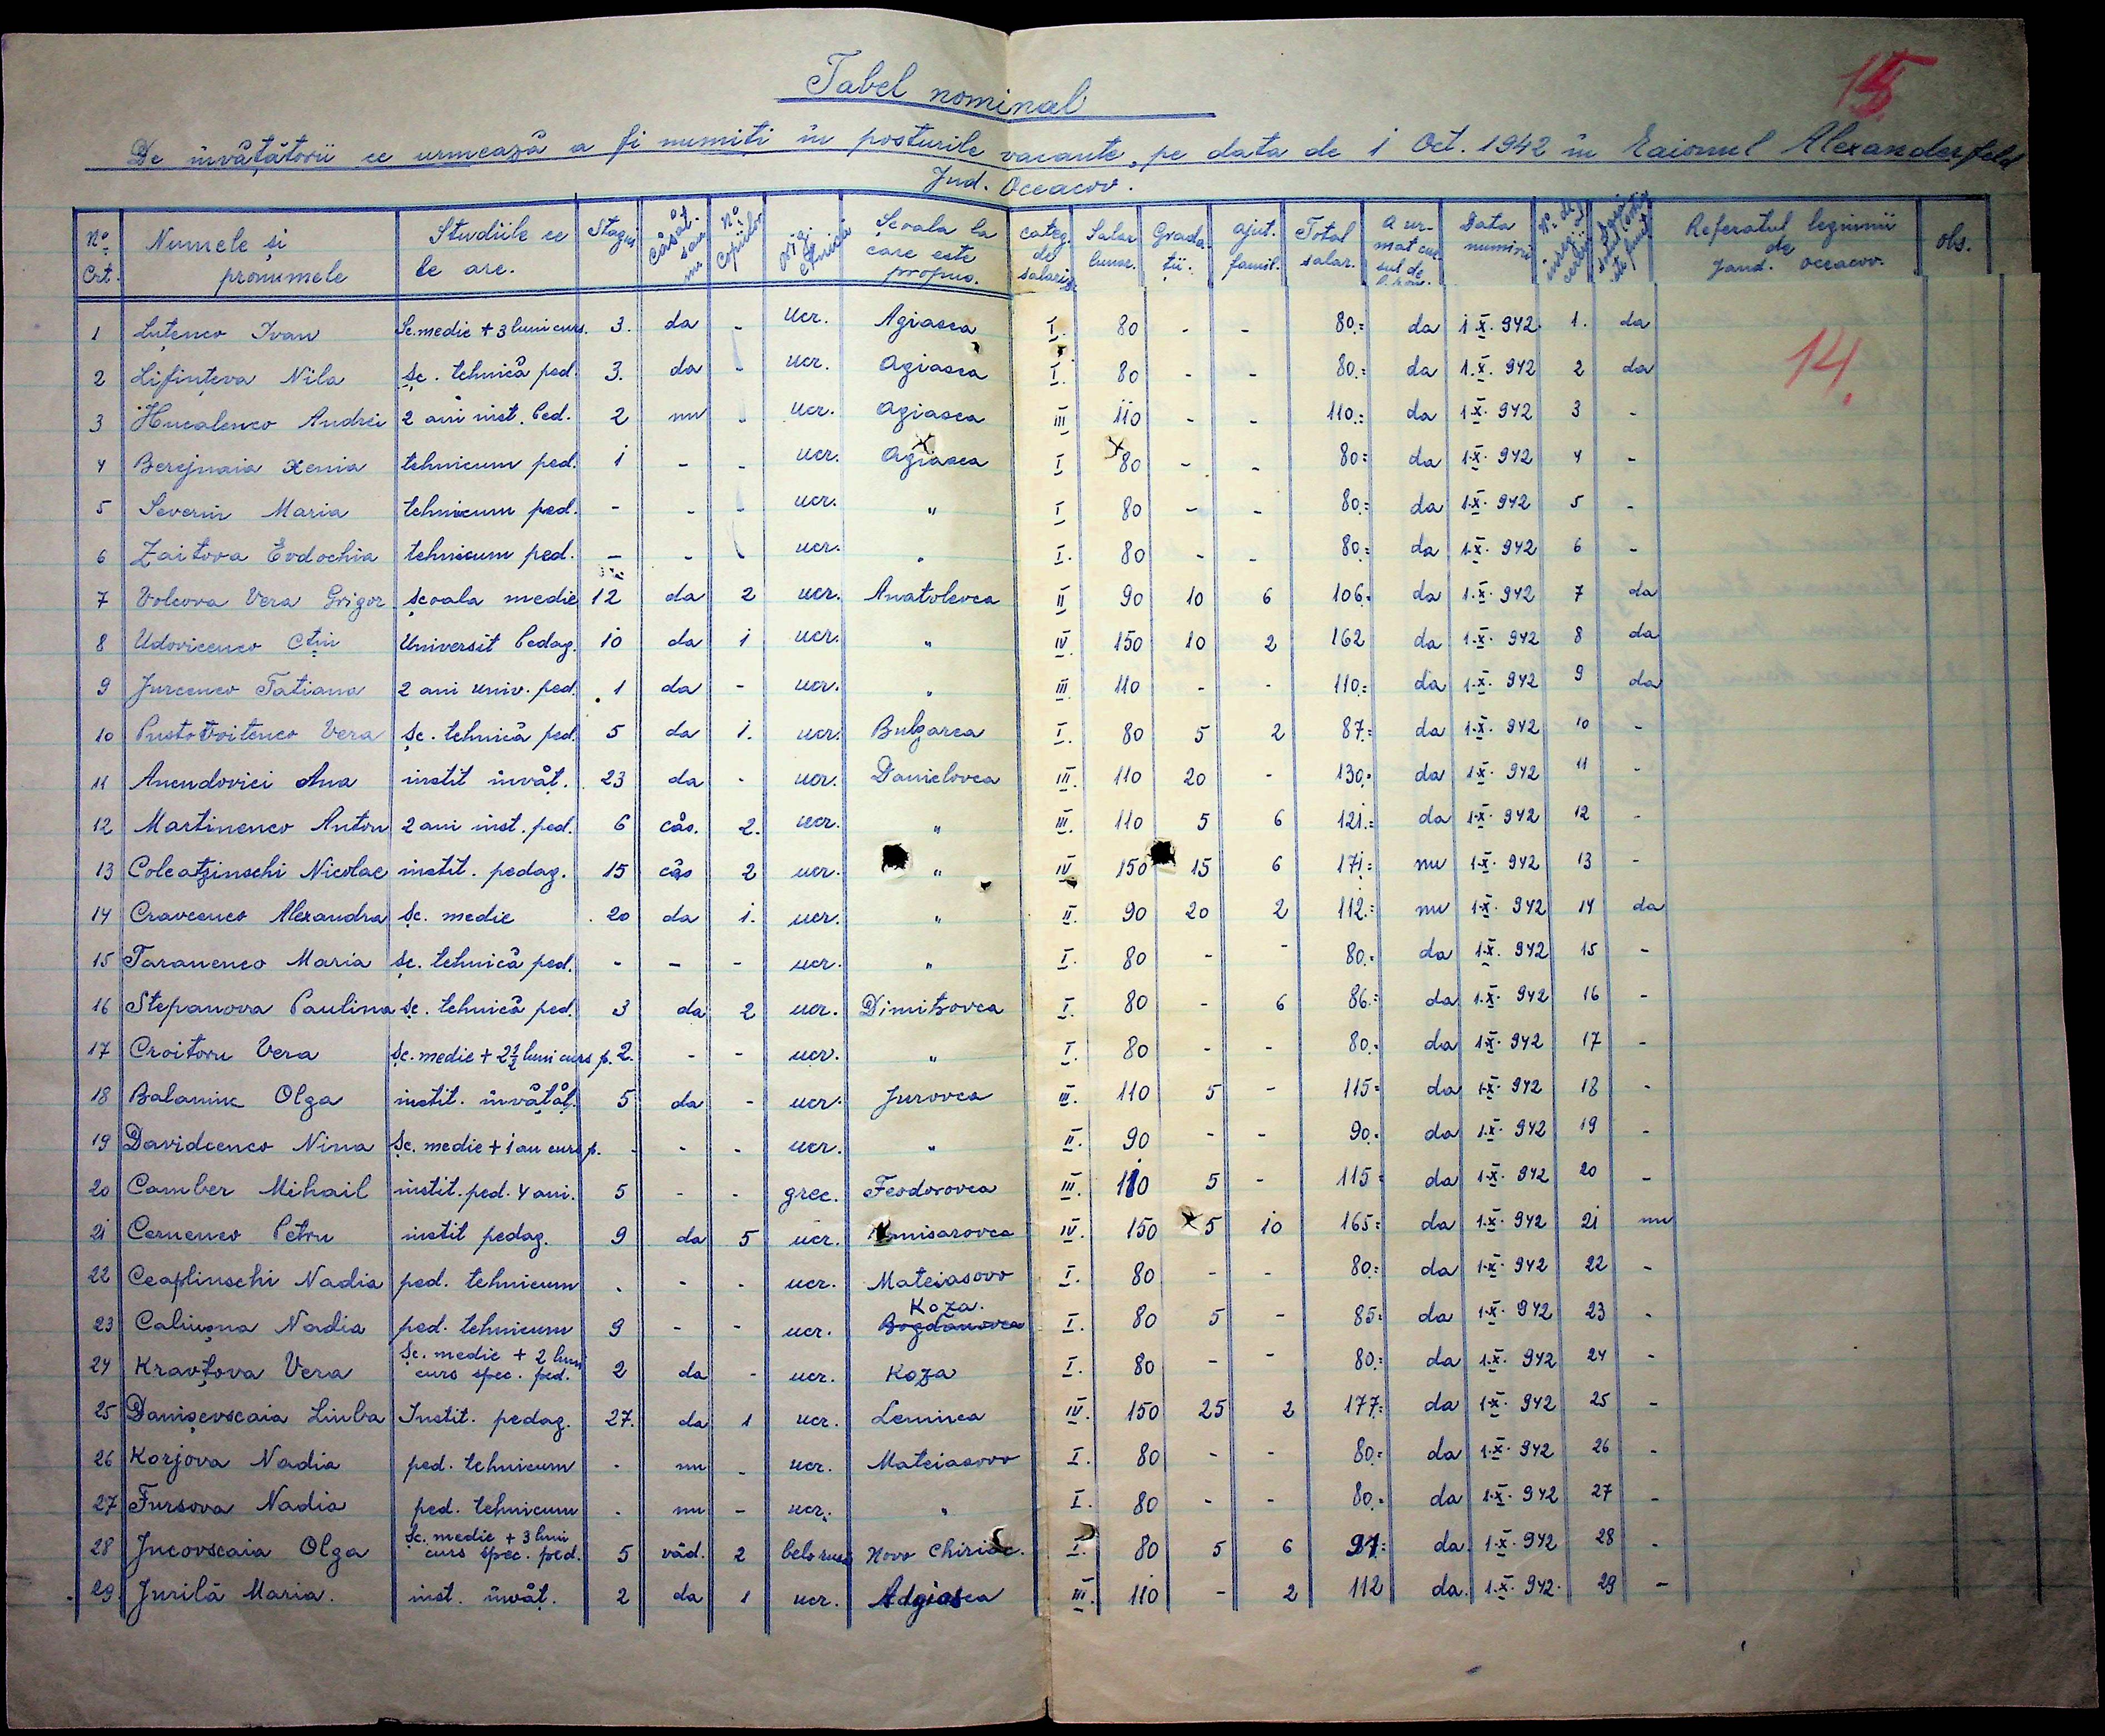 15
Tabel nominal
De învățătorii ce urmează a fi numiti în posturile vacante, pe data de 1 Oct. 1942 în Raionul Alexanderfeld
Jud. Oceacov.
No Crt. | Numele și pronumele | Studiile ce le are. | Stagiu | Căsăt. sau nu | No Copiilor | orig. etnică | Școala la care este propus. | categ. de salariz. | Salar lunar. | Grada ții. | ajut. famil. | Total salar. | a ur- mat cur sul de | Data numirii | No. de | Referatul legiunii de Jand. Oceacov. | obs.
1 Luțenco Ivan Sc. medie + 3 luni curs. 3. da - ucr. Agiasca I. 80 - - 80.= da 1.X.942. 1. da
14.
2 Lifințeva Nila Șc. tehnică ped. 3. da - ucr. Agiasca I. 80 - - 80.= da 1.X.942 2 da
3 Hucalenco Andrei 2 ani inst. Ped. 2 nu - ucr. Agiasca III 110 - - 110.= da 1.X.942 3 -
4 Berejnaia Xenia tehnicum ped. 1 - - ucr. Agiasca I 80 - - 80= da 1.X.942 4 -
5 Severin Maria tehnicum ped. - - - ucr. " I 80 - - 80.= da 1.X.942 5 -
6 Zaitova Evdochia tehnicum ped. - - - ucr. " I. 80 - - 80.= da 1.X.942 6 -
7 Volcova Vera Grigor școala medie 12 da 2 ucr. Anatolevca II 90 10 6 106.= da 1.X.942 7 da
8 Udovicenco Ctin Universit Pedag. 10 da 1 ucr. " IV. 150 10 2 162 da 1.X.942 8 da
9 Jurcenco Tatiana 2 ani univ. ped. 1 da - ucr. " III 110 - - 110.= da 1.X.942 9 da
10 Pustovoitenco Vera Șc. tehnică ped. 5 da 1. ucr. Bulgarca I. 80 5 2 87.= da 1.X.942 10 -
11 Anendovici Ana instit învăț. 23 da - ucr. Danielovca III. 110 20 - 130.= da 1.X.942 11 -
12 Martinenco Anton 2 ani inst. ped. 6 căs. 2. ucr. " III. 110 5 6 121.= da 1.X.942 12 -
13 Coleatzinschi Nicolae instit. pedag. 15 căs 2 ucr. " IV 150 15 6 171= nu 1.X.942 13 -
14 Cravcenco Alexandra Șc. medie 20 da 1. ucr. " II. 90 20 2 112.= nu 1.X.942 14 da
15 Taranenco Maria Șc. tehnică ped. - - - ucr. " I. 80 - - 80.= da 1.X.942 15 -
16 Stepanova Paulina Șc. tehnică ped. 3 da 2 ucr. Dimitrovca I. 80 - 6 86.= da 1.X.942 16 -
17 Croitoru Vera Șc. medie + 2½ luni curs p. 2. - - ucr. " I. 80 - - 80.= da 1.X.942 17 -
18 Balaniuc Olga instit. învățăt. 5 da - ucr. Jurovca III. 110 5 - 115= da 1.X.942 18 -
19 Davidcenco Nina Șc. medie + 1 an curs p. - - - ucr. " II. 90 - - 90.= da 1.X.942 19 -
20 Camber Mihail instit. ped. 4 ani. 5 - - grec. Feodorovca III. 110 5 - 115= da 1.X.942 20 -
21 Cernenco Petru instit pedag. 9 da 5 ucr. IV. 150 5 10 165= da 1.X.942 21 nu
22 Ceaplinschi Nadia ped. tehnicum . - - ucr. Mateiasovo I. 80 - - 80.= da 1.X.942 22 -
Koza.
23 Caliușna Nadia ped. tehnicum 9 - - ucr. Bogdanovca I. 80 5 - 85= da 1.X.942 23 -
24 Kravțova Vera Șc. medie + 2 luni curs spec. ped. 2 da - ucr. Koza I. 80 - - 80.= da 1.X.942 24 -
25 Danișevscaia Liuba Instit. pedag. 27. da 1 ucr. Leninca IV. 150 25 2 177= da 1.X.942 25 -
26 Korjova Nadia ped. tehnicum . nu - ucr. Mateiasovo I. 80 - - 80.= da 1.X.942 26 -
27 Fursova Nadia ped. tehnicum . nu - ucr. " I. 80 - - 80.= da 1.X.942 27 -
28 Jucovscaia Olga Șc. medie + 3 luni curs spec. ped. 5 văd. 2 belorusă Novo Chiriac. I. 80 5 6 91= da. 1.X.942 28 -
29 Jurilă Maria. inst. învăț. 2 da 1 ucr. Adgiasca III. 110 - 2 112 da. 1.X.942. 29 -